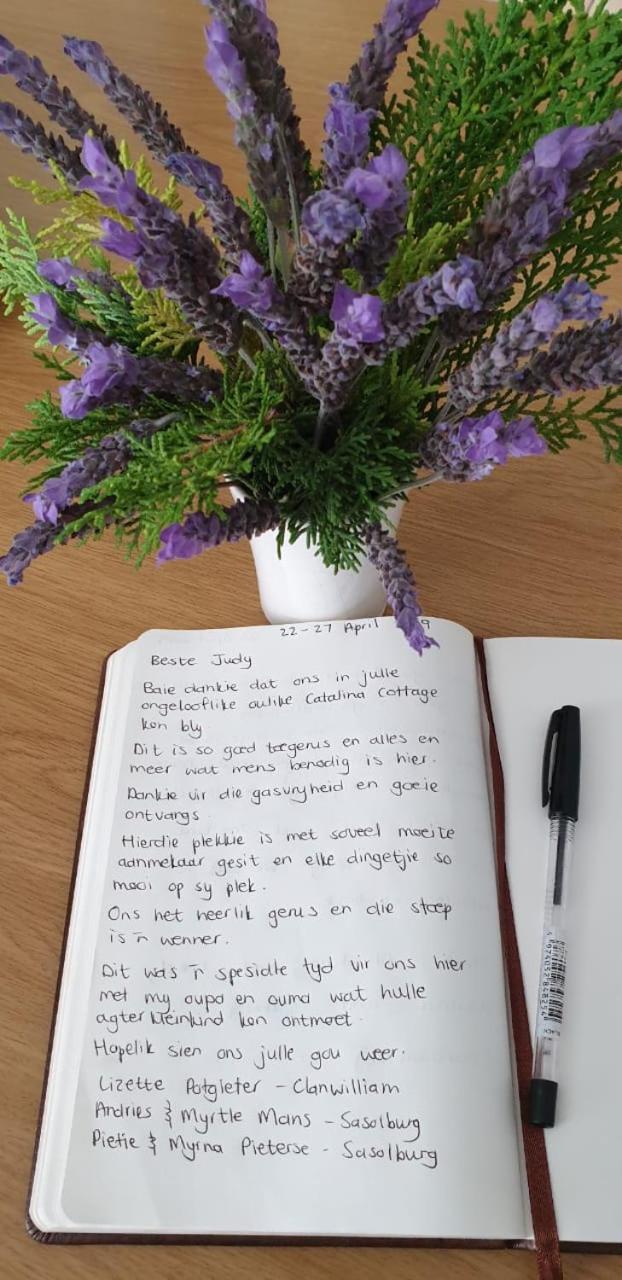 22-27 April 9
Beste Judy
Baie dankie dat ons in julle
ongelooflike oulike Catalina Cottage
kon bly.
Dit is so goed toegerus en alles en
meer wat mens benodig is hier.
Dankie vir die gasvryheid en goeie
ontvangs.
Hierdie plekkie is met soveel moeite
aanmekaar gesit en elke dingetjie so
mooi op sy plek.
Ons het heerlik gerus en die stoep
is 'n wenner.
Dit was 'n spesiale tyd vir ons hier
met my oupa en ouma wat hulle
agter kleinkind kon ontmoet.
Hopelik sien ons julle gou weer.
Lizette Potgieter - Clanwilliam
Andries & Myrtle Mans - Sasolburg
Pietie & Myrna Pieterse - Sasolburg